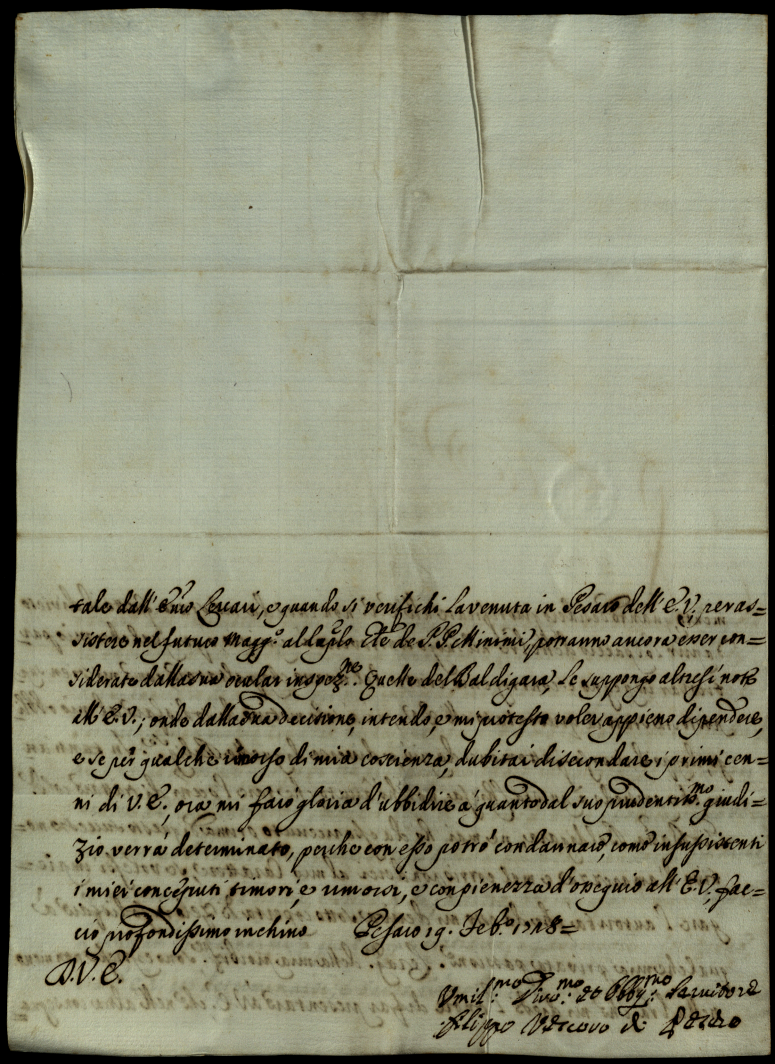 tale dall' Em̃o Lercari, e quando si verifichi la venuta in Pesaro dell' E. V. per as=
sistere nel futuro Magg.o al Cap̃lo de P. P. Minimi, potranno ancora esser con=
siderate dalla sua ocular inspez.ne Quelle del Baldigara, le suppongo altresì note
all' E. V.; onde dalla sua decisione, intendo, e mi protesto voler appieno dipendere,
e se per qualche rimorso di mia coscienza, dubitai di secondare i primi cen=
ni di V. E., ora mi farò gloria d'ubbidire a quanto dal suo prudentiss.mo giudi=
zio verrà determinato, perche con esso potrò condannare, come insussistenti
i miei conceputi timori, e rimorsi, e con pienezza d'ossequio all' E. V. fac=
cio profondissimo inchino Pesaro 19. Feb.o
D. V. E.
Vmil.mo Divo.mo et Obbg.mo Servitore
Filippo Vescovo di Pesaro